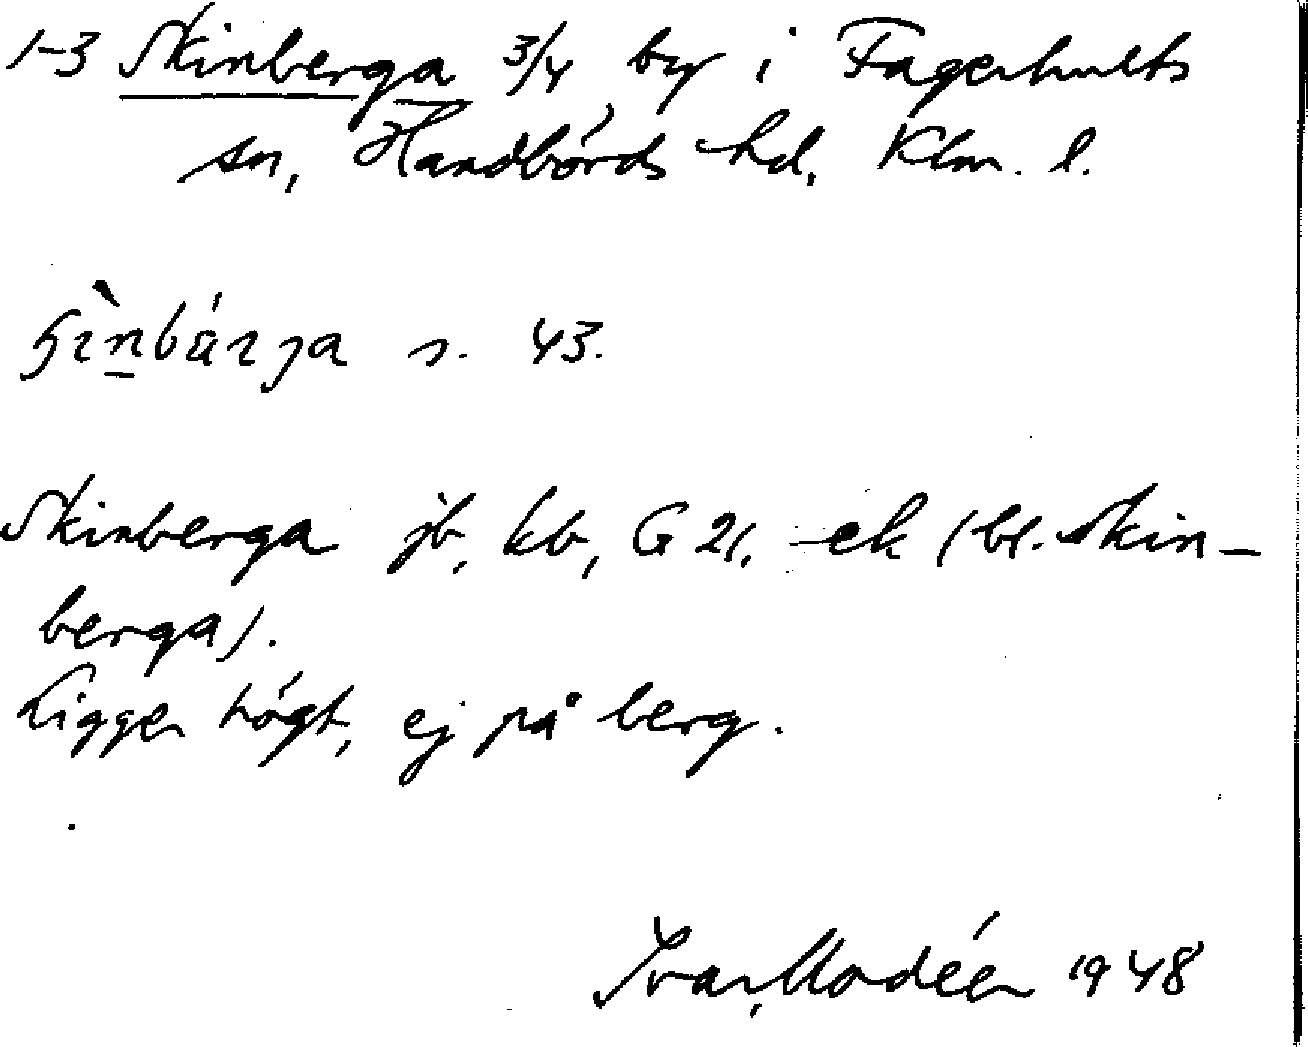 1-3 Skinberga 3/4 by i Fagerhults
sn, Handbörds hd, Klm. l.
s. 43.
Skinberga jb, kb, G 21, ek (bl. Skin-
berga).
Ligger högt, ej på berg.
Ivar Modéer 1948